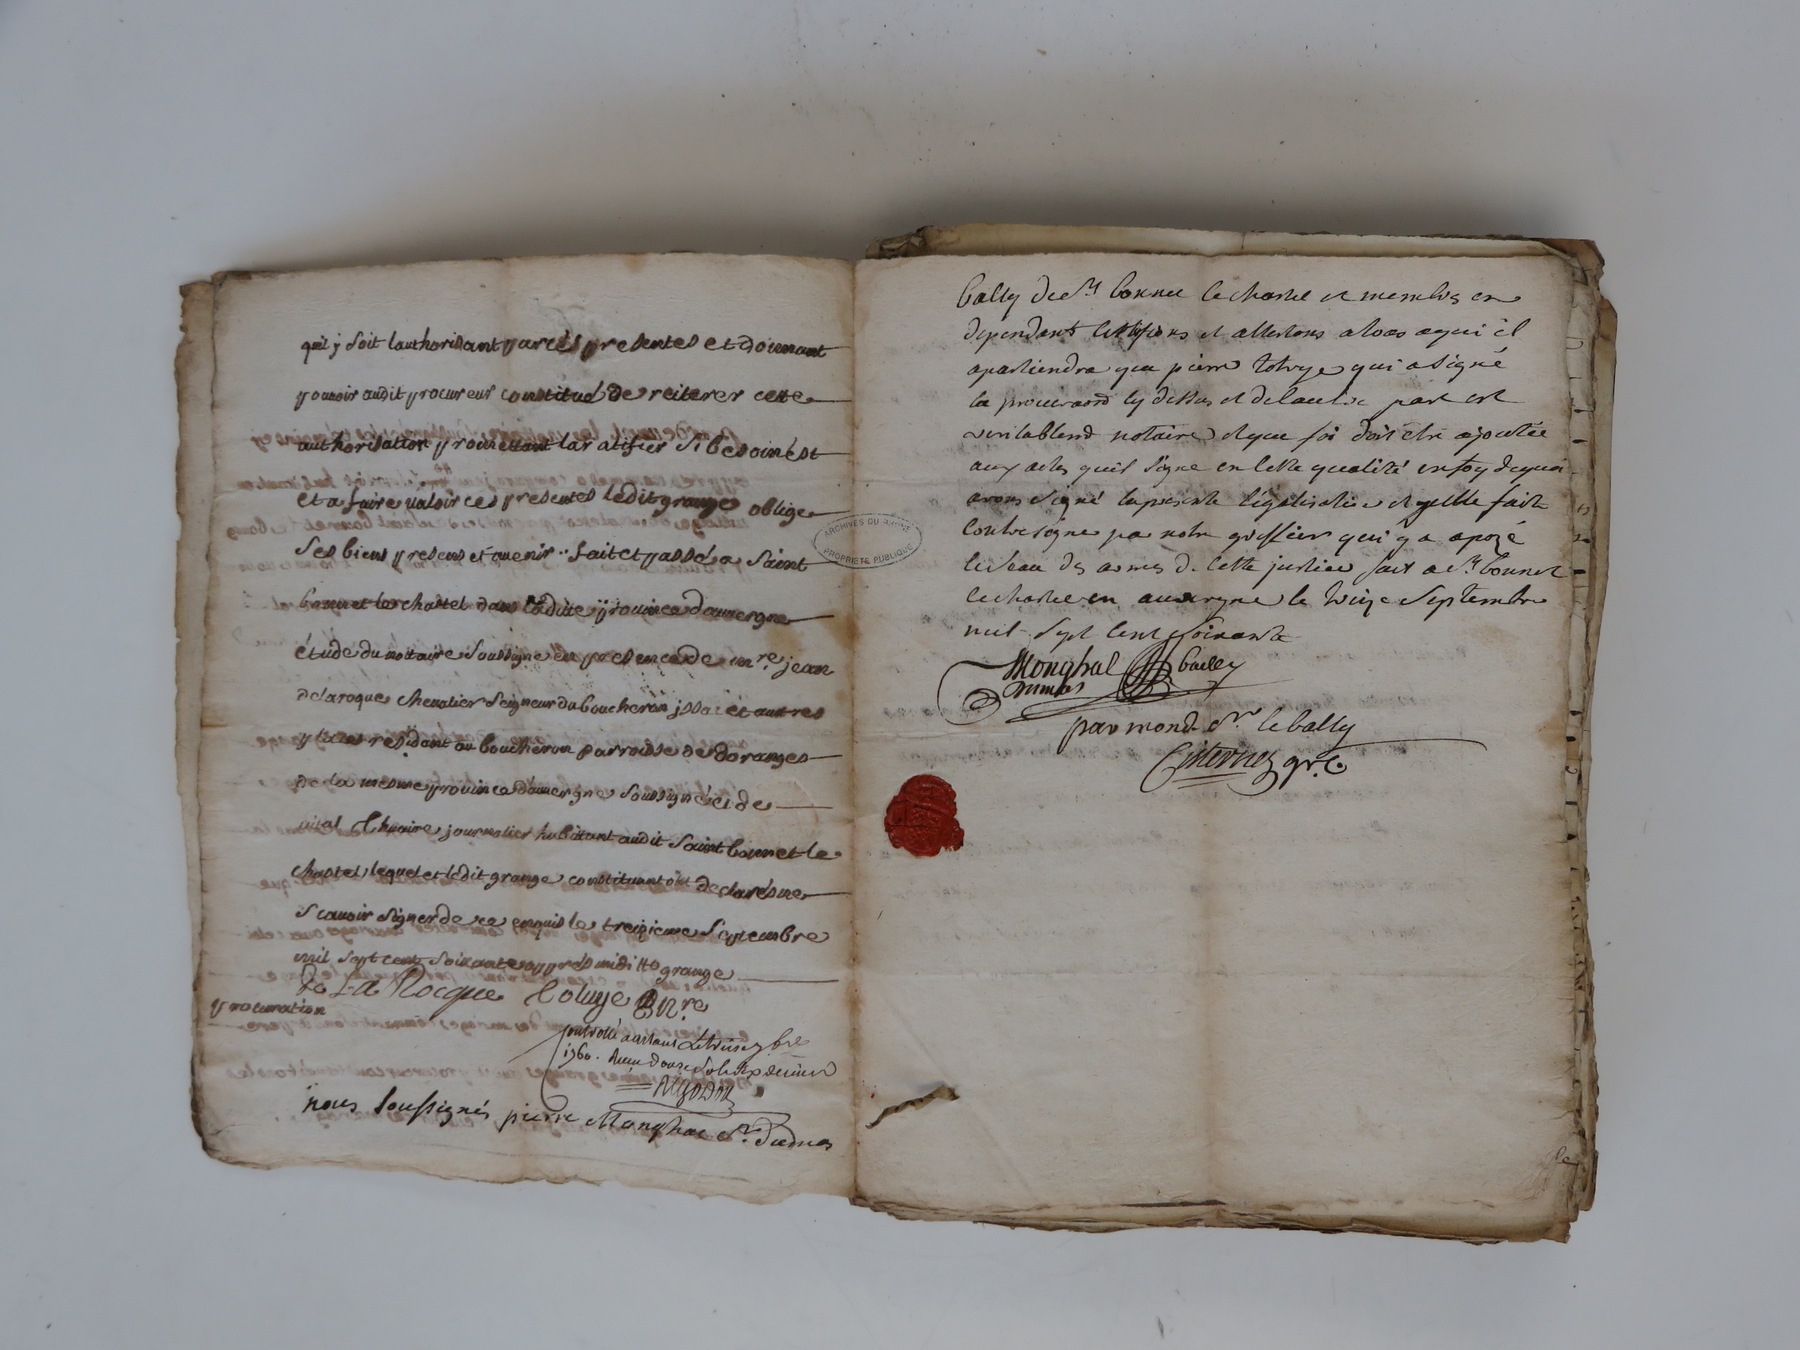 qu'il y soit l'authorisant par ces presentes et donnant
pouvoir audit procureur constitué de reiterer cette
authorisation promettant la ratifier si besoin est
et a faire valoir ces presentes ledit grange oblige
ses biens presens et avenir. fait et passé a Saint
bonnet le chastel dans ladite province dauvergne
étude du notaire soussigné en presence de mre. jean
delaroque chevalier seigneur du boucheron et autres
places residant au boucheron parroisse de doranges
de la mesme province dauvergne soussigné et de
vital journalier habitant audit Saint bonnet le
chastel lequel et ledit grange constituant ont declaré ne
scavoir signer de ce enquis le treizieme Septembre
mil sept cent soixante apprés midi grange
De La Rocque Coluye Nre
procuration
controllé a arlanc le treize 7bre
1760. Recu douze sols six deniers
nous soussignés pierre Monghal Sr. dumas
bally de St bonnet le chastel et membres en
dependant certifions et attestons a tous a qui il
apartiendra que pierre Coluye qui a signé
la procuration cy dessus et de lautre part est
veritablement notaire et que foi doit etre ajoutée
aux actes quil signe en cette qualité en foy de quoi
avons signé la presente légalisation et icelle faite
contresigne par notre greffier qui y a apozé
le sceau des armes de cette justice fait a St bonnet
le chastel en auvergne le treize Septembre
mil sept cent soixante
Monghal bailly
Dumas
par mond. Sr. le bally
Cisternes gre.
ARCHIVES DU RHONE
PROPRIETE PUBLIQUE